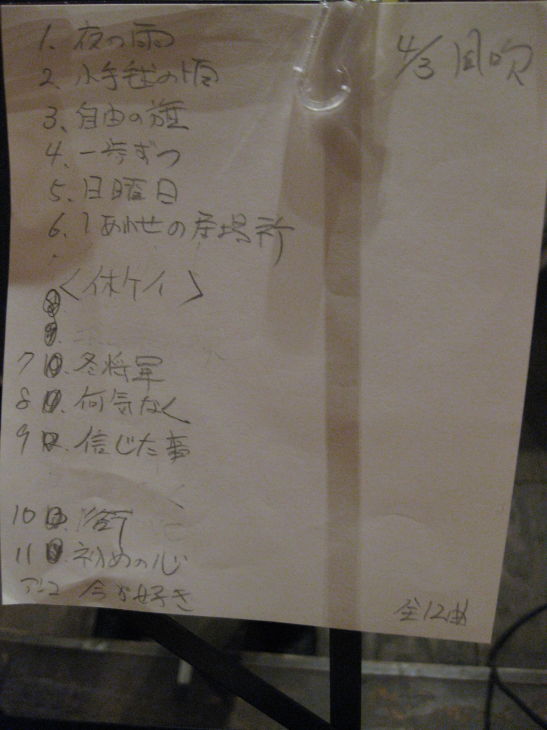 4/3 風吹
1. 夜の雨
2. 小手毬の頃
3. 自由の旗
4. 一歩ずつ
5. 日曜日
6. しあわせの居場所
<休ケイ>
7 冬将軍
8 何気なく
9 信じた事
10
11 初めの心
アンコ 今が好き
全12曲